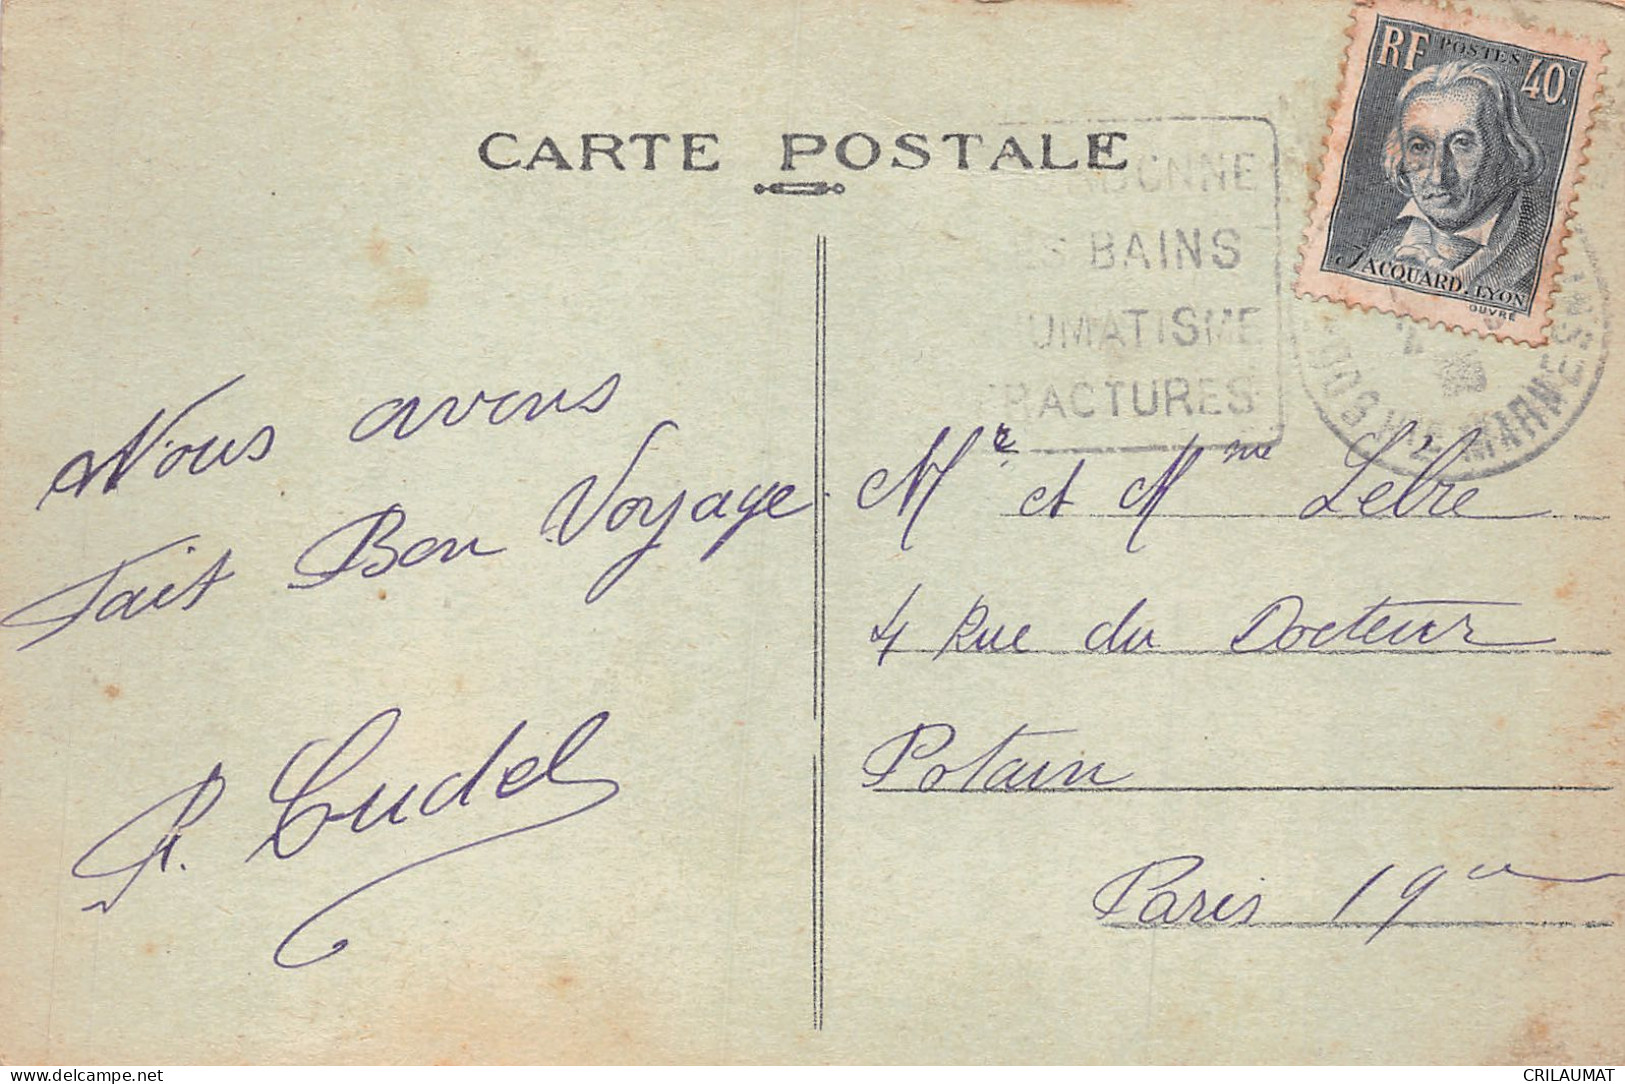 CARTE POSTALE
RF POSTES 40c.
JACQUARD. LYON
OUVRÉ
BAINS
FRACTURES
HTE MARNE
Nous avons
fait Bon Voyage.
Mr et Mme Lebre
4 Rue du Docteur
Potain
Paris 19
delcampe.net
CRILAUMAT